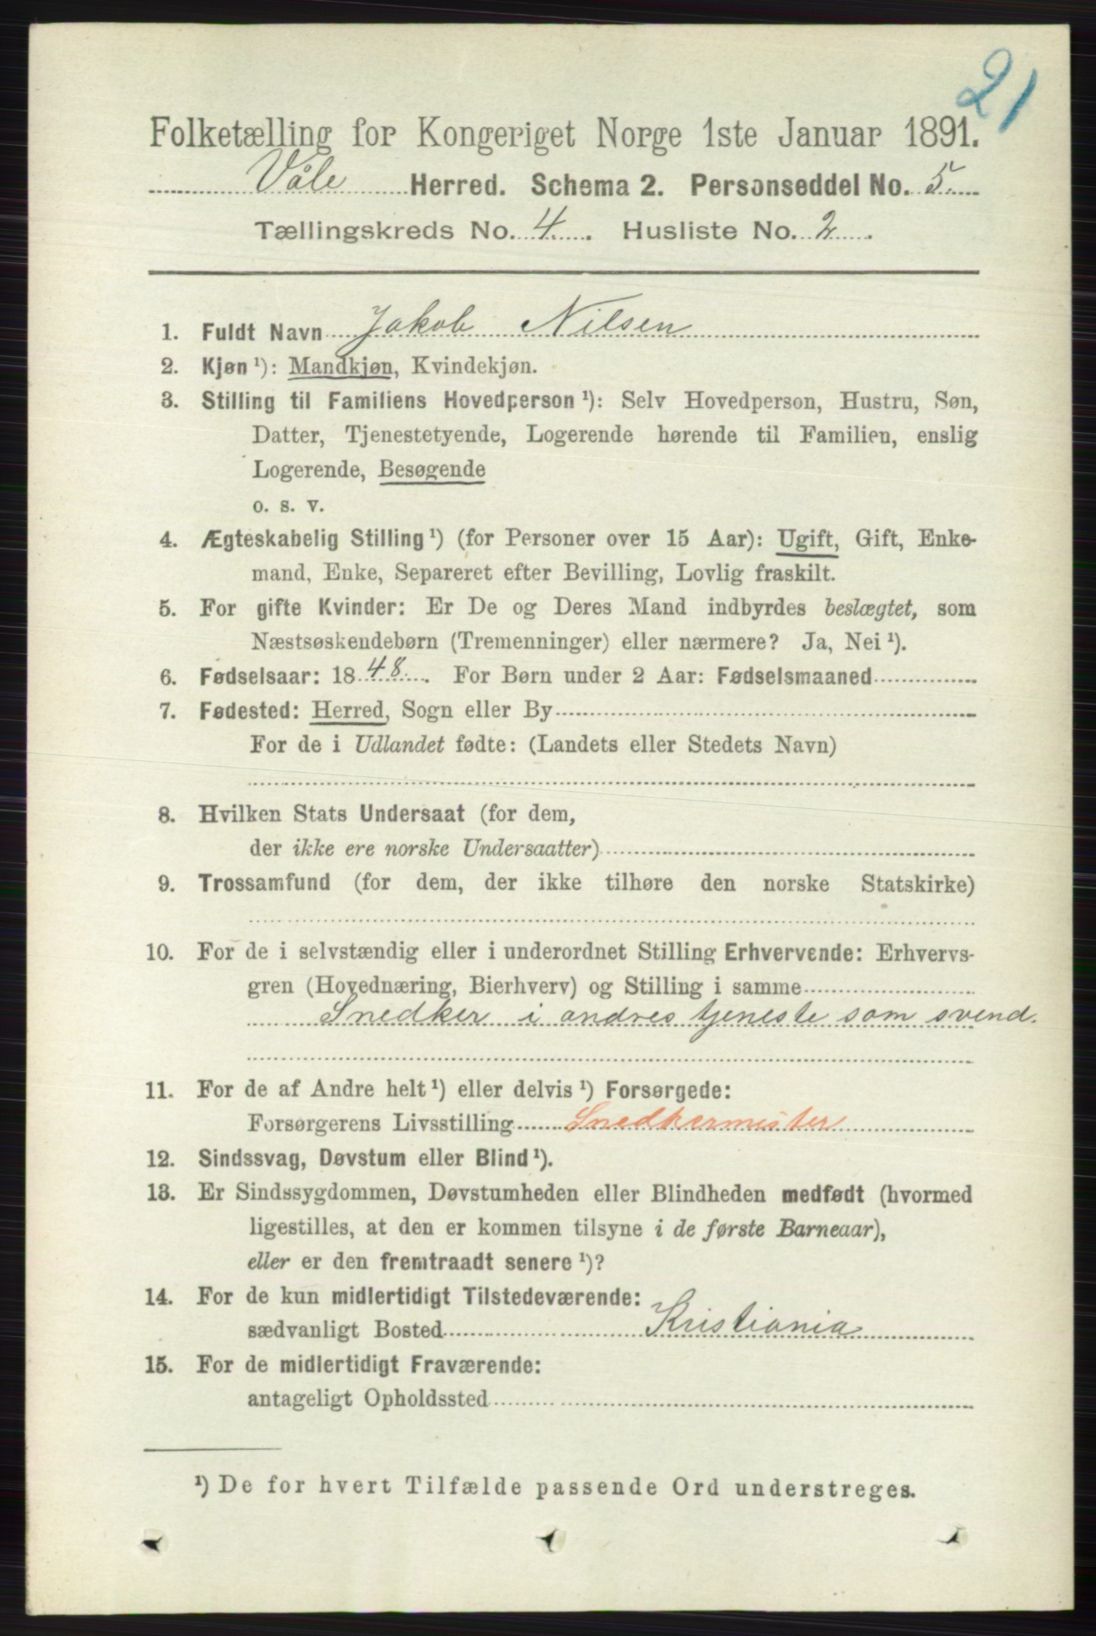 21
Folketælling for Kongeriget Norge 1ste Januar 1891.
Våle Herred. Schema 2. Personseddel No. 5.
Tællingskreds No. 4. Husliste No. 2.
1. Fuldt Navn Jakob Nilsen
2. Kjøn ¹): Mandkjøn, Kvindekjøn.
3. Stilling til Familiens Hovedperson ¹): Selv Hovedperson, Hustru, Søn,
Datter, Tjenestetyende, Logerende hørende til Familien, enslig
Logerende, Besøgende
o. s. v.
4. Ægteskabelig Stilling ¹) (for Personer over 15 Aar): Ugift, Gift, Enke-
mand, Enke, Separeret efter Bevilling, Lovlig fraskilt.
5. For gifte Kvinder: Er De og Deres Mand indbyrdes beslægtet, som
Næstsøskendebørn (Tremenninger) eller nærmere? Ja, Nei ¹).
6. Fødselsaar: 1848. For Børn under 2 Aar: Fødselsmaaned
7. Fødested: Herred, Sogn eller By
For de i Udlandet fødte: (Landets eller Stedets Navn)
8. Hvilken Stats Undersaat (for dem,
der ikke ere norske Undersaatter)
9. Trossamfund (for dem, der ikke tilhøre den norske Statskirke)
10. For de i selvstændig eller i underordnet Stilling Erhvervende: Erhvervs-
gren (Hovednæring, Bierhverv) og Stilling i samme
Snedker i andres tjeneste som svend.
11. For de af Andre helt ¹) eller delvis ¹) Forsørgede:
Forsørgerens Livsstilling Snedkermister
12. Sindssvag, Døvstum eller Blind ¹).
13. Er Sindssygdommen, Døvstumheden eller Blindheden medfødt (hvormed
ligestilles, at den er kommen tilsyne i de første Barneaar),
eller er den fremtraadt senere ¹)?
14. For de kun midlertidigt Tilstedeværende:
sædvanligt Bosted Kristiania
15. For de midlertidigt Fraværende:
antageligt Opholdssted
¹) De for hvert Tilfælde passende Ord understreges.